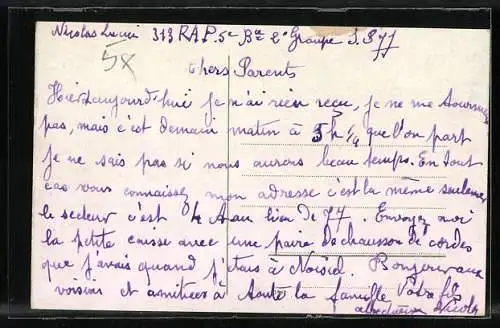 Nicolas Lucien 313 R.A.P. 5e Bie 2e Groupe S.P 77
58
Chers Parents
Hier Laujourd'hui je n'ai rien reçu, je ne me
pas, mais c'est demain matin à 5h 1/4 que l'on part
je ne sais pas si nous aurons beau temps. En tout
cas vous connaissez mon adresse c'est la même seulement
le secteur c'est 4 A au lieu de 77. Envoyez moi
la petite caisse avec une paire de chausson de cordes
que j'avais quand j'étais à Bonjour aux
voisins et amitiées à toute la famille Votre fils
affectueux Nicolas